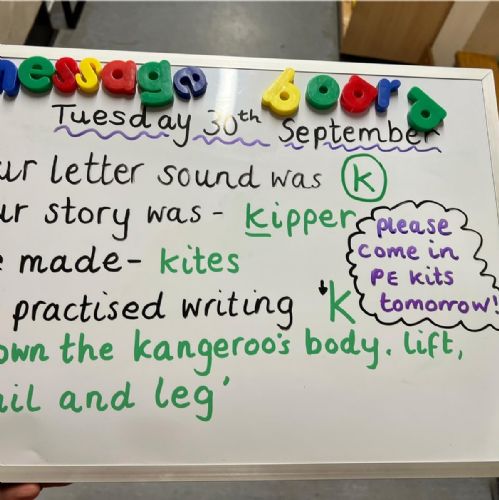 message board
Tuesday 30th September
ur letter sound was k
ur story was - kipper
e made - kites
practised writing k
own the kangeroo's body. lift,
ail and leg'
please
come in
PE kits
tomorrow!